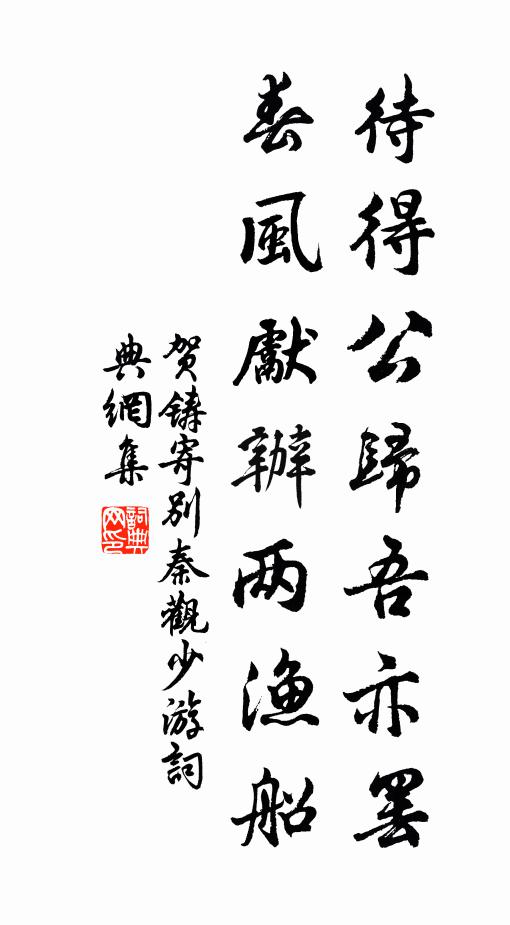 待得公歸吾亦罢
春風獻辦两漁船
贺鑄寄別秦觀少游詞
典網集
詞典网印